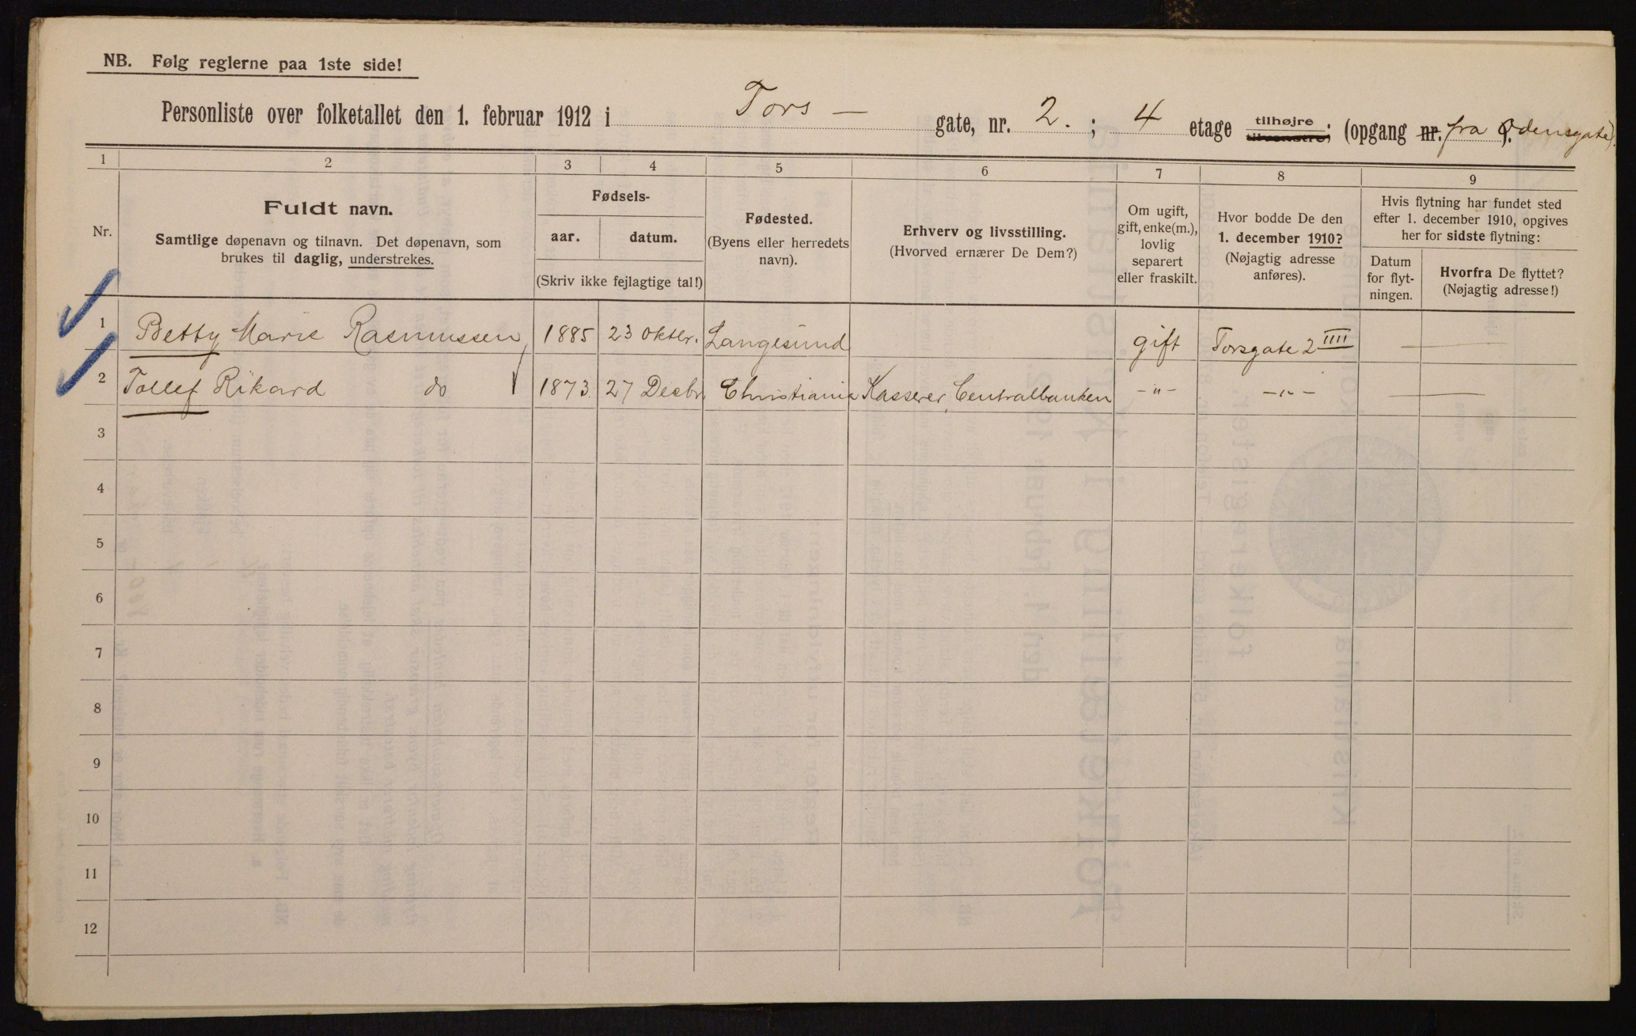 NB. Følg reglerne paa 1ste side!
Personliste over folketallet den 1. februar 1912 i Tors — gate, nr. 2. ; 4 etage tilhøjre, tilvenstre, (opgang nr. fra Odensgate).
1 2 3 4 5 6 7 8 9
Nr.
Fuldt navn.
Samtlige døpenavn og tilnavn. Det døpenavn, som
brukes til daglig, understrekes.
Fødsels-
aar. datum.
(Skriv ikke fejlagtige tal!)
Fødested.
(Byens eller herredets
navn).
Erhverv og livsstilling.
(Hvorved ernærer De Dem?)
Om ugift,
gift, enke(m.),
lovlig
separert
eller fraskilt.
Hvor bodde De den
1. december 1910?
(Nøjagtig adresse
anføres).
Hvis flytning har fundet sted
efter 1. december 1910, opgives
her for sidste flytning:
Datum
for flyt-
ningen.
Hvorfra De flyttet?
(Nøjagtig adresse!)
1 Betty Marie Rasmussen 1885 23 oktbr. Langesund gift Torsgate 2 IIII —
2 Tollef Rikard do 1873 27 Decbr Christiania Kasserer, Centralbanken -"- -"- —
3
4
5
6
7
8
9
10
11
12